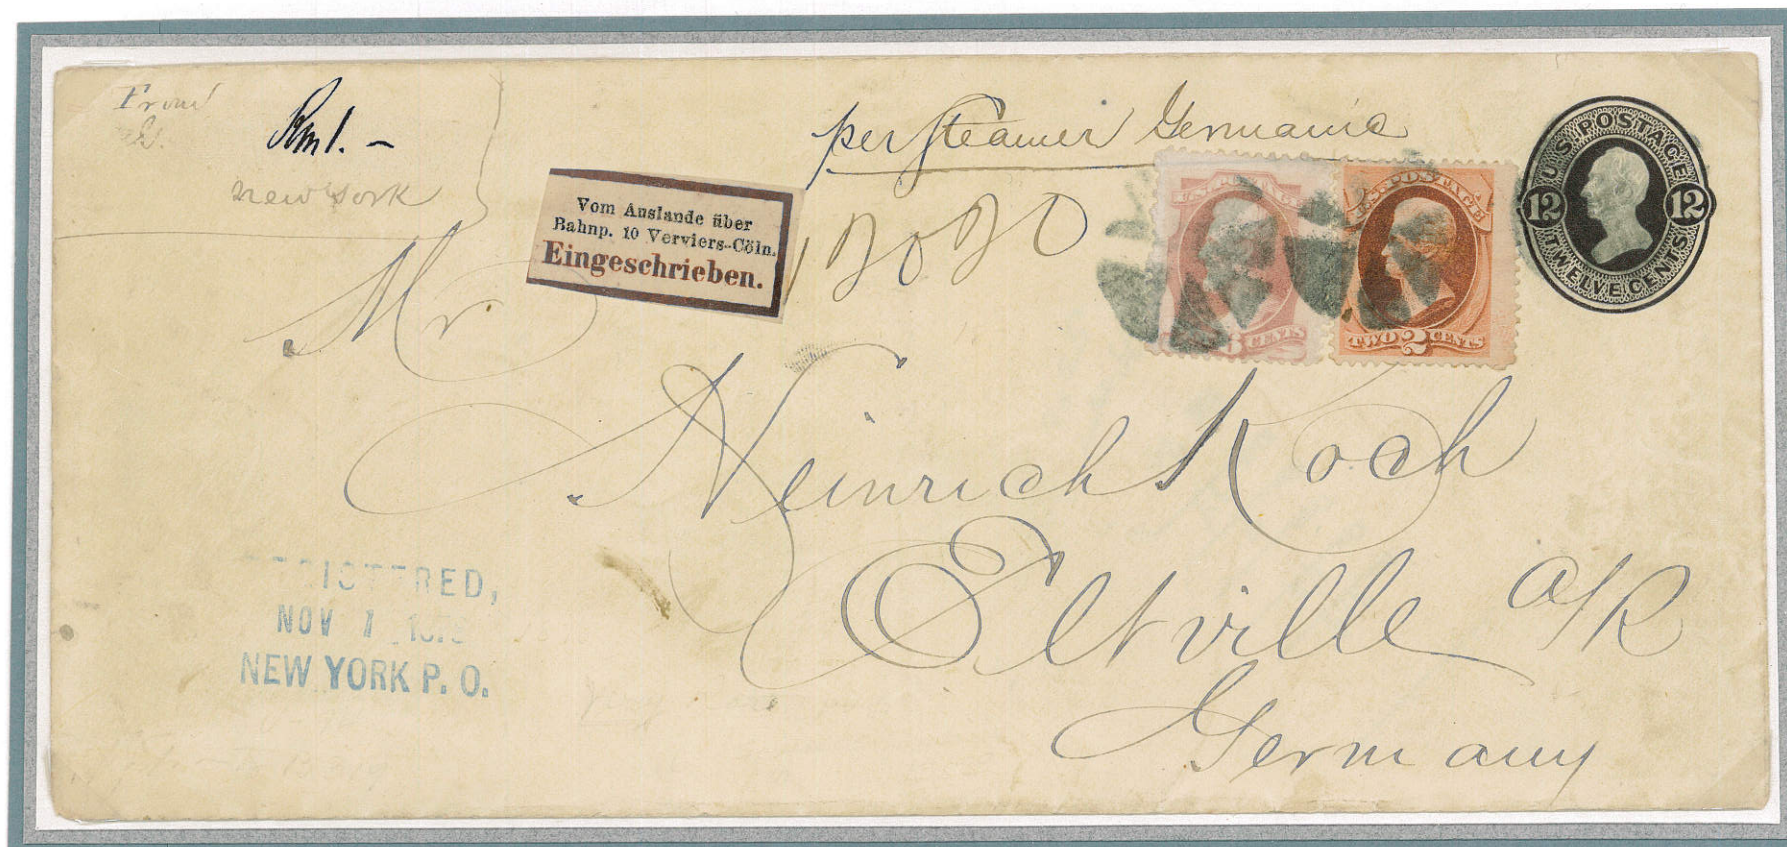 From
New York
per Steamer Germanic
Vom Auslande über
Bahnp. 10 Verviers-Cöln.
Eingeschrieben.
U.S. POSTAGE
12 12
TWELVE CENTS
U.S. POSTAGE
CENTS
U.S. POSTAGE
TWO 2 CENTS
Mr.
Heinrich Koch
Eltville a/R
Germany
REGISTERED,
NOV 1
NEW YORK P. O.